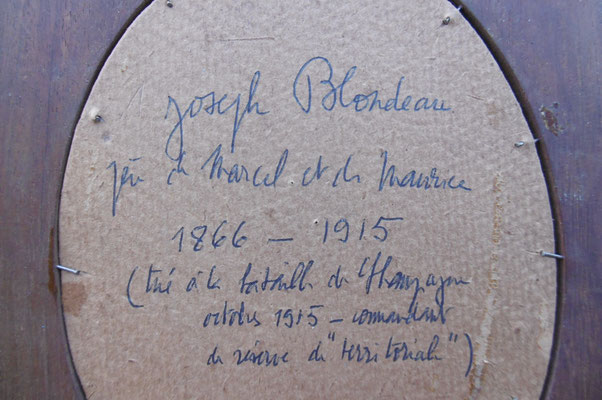 Joseph Blondeau
père de Marcel et de Maurice
1866 - 1915
(tué à la bataille de Champagne
octobre 1915 - commandant
de réserve de "territoriale")